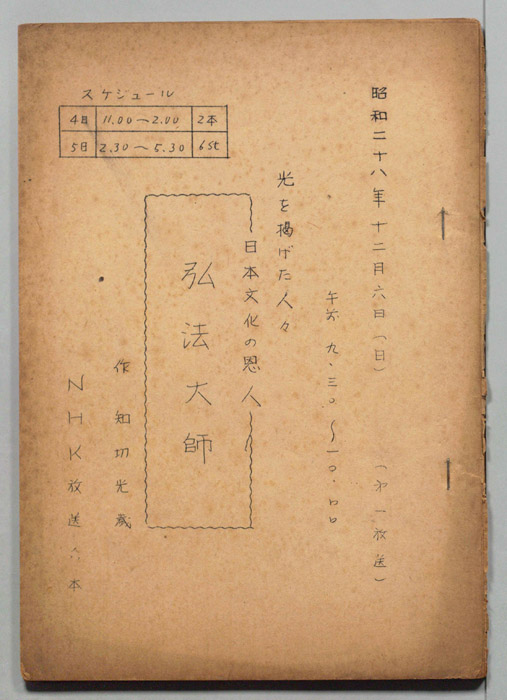 昭和二十八年十二月六日(日)(第一放送)
午前 九.三〇〜一〇.〇〇
光を掲げた人々
日本文化の恩人
弘法大師
作 知切光歳
NHK放送台本
スケジュール
4日 11.00〜2.00 2本
5日 2.30〜5.30 6st